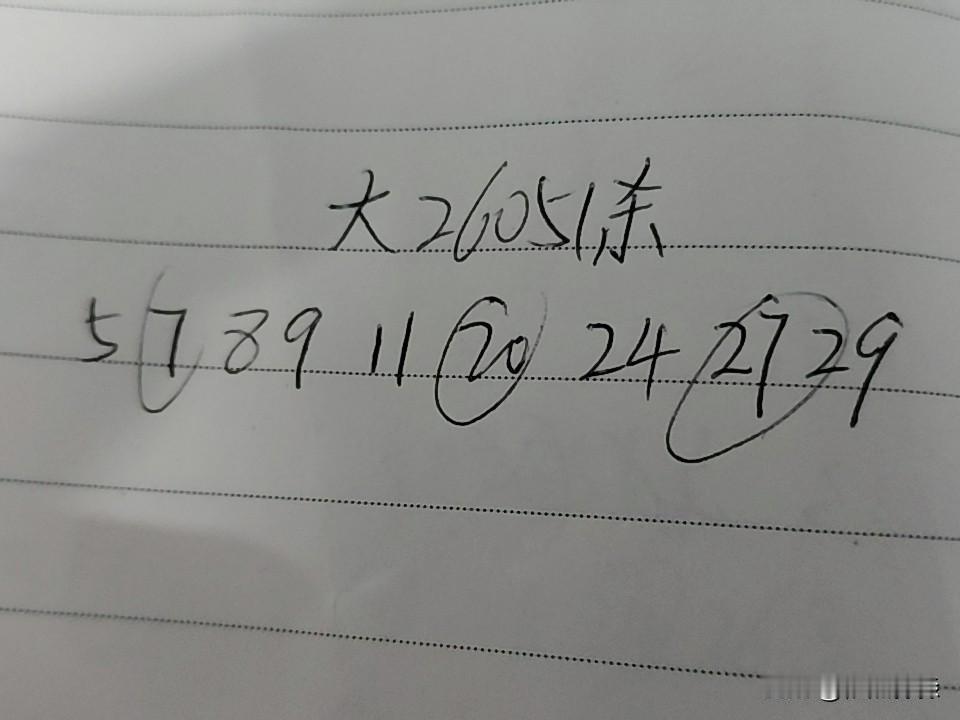 大26051杀
5 7 8 9 11 20 24 27 29